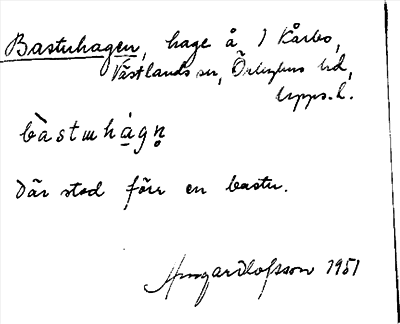 Bastuhagen, hage å 1 Kårbo,
Västlands sn, Örbyhus hd,
Upps. l.
bàstɯhág̣ṇ
Där stod förr en bastu.
Olofsson 1951